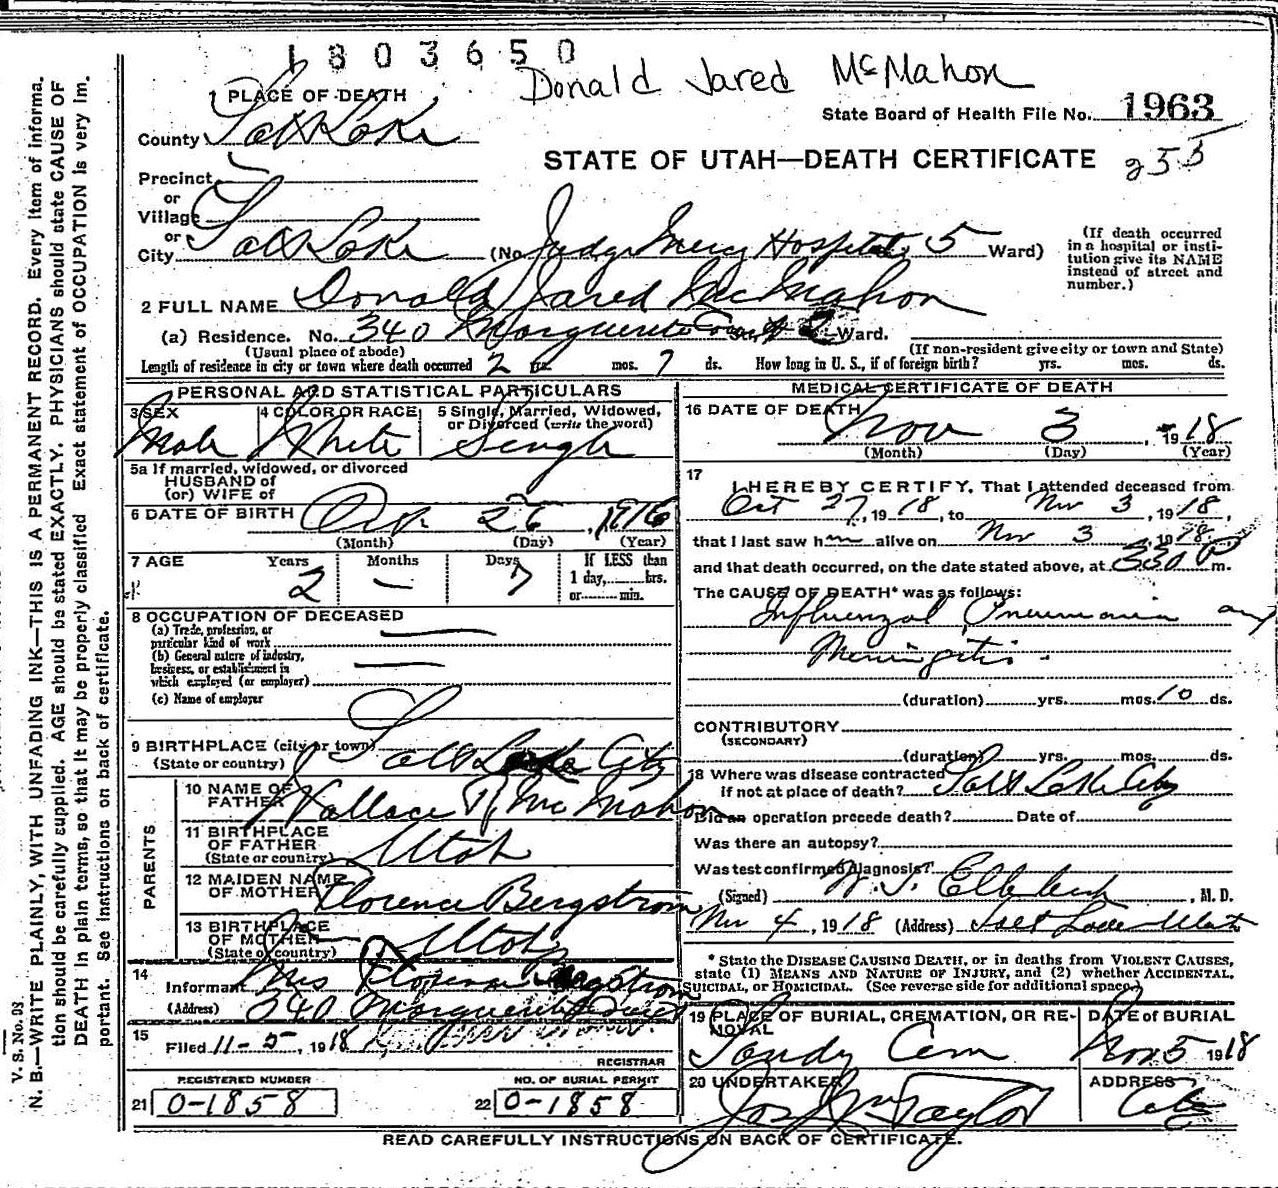 1803650
Donald Jared McMahon
1 PLACE OF DEATH
State Board of Health File No. 1963
County Salt Lake
STATE OF UTAH—DEATH CERTIFICATE 255
Precinct
or
Village
or
City Salt Lake (No. Judge Mercy Hospital, 5 Ward)
(If death occurred in a hospital or insti-
tution give its NAME
instead of street and
number.)
2 FULL NAME Donald Jared McMahon
(a) Residence. No. 340 Marguerite Ward.
(Usual place of abode) (If non-resident give city or town and State)
Length of residence in city or town where death occurred 2 yrs. mos. 7 ds. How long in U. S., if of foreign birth? yrs. mos. ds.
PERSONAL AND STATISTICAL PARTICULARS
3 SEX 4 COLOR OR RACE 5 Single, Married, Widowed,
or Divorced (write the word)
Male White Single
5a If married, widowed, or divorced
HUSBAND of
(or) WIFE of
6 DATE OF BIRTH 26, 1916
(Month) (Day) (Year)
7 AGE Years Months Days If LESS than
1 day, hrs.
or min.
2 — 7
8 OCCUPATION OF DECEASED
(a) Trade, profession, or
particular kind of work
(b) General nature of industry,
business, or establishment in
which employed (or employer)
(c) Name of employer
9 BIRTHPLACE (city or town)
(State or country) Salt Lake City
PARENTS
10 NAME OF
FATHER Wallace R. McMahon
11 BIRTHPLACE
OF FATHER
(State or country) Utah
12 MAIDEN NAME
OF MOTHER Florence Bergstrom
13 BIRTHPLACE
OF MOTHER
(State or country) Utah
14
Informant Mrs Florence Bergstrom
(Address) 340 Marguerite
15
Filed 11-5, 1918
REGISTRAR
REGISTERED NUMBER NO. OF BURIAL PERMIT
21 0-1858 22 0-1858
MEDICAL CERTIFICATE OF DEATH
16 DATE OF DEATH Nov 3, 1918
(Month) (Day) (Year)
17
I HEREBY CERTIFY, That I attended deceased from
Oct 27, 1918, to Nov 3, 1918,
that I last saw him alive on Nov 3, 1918.
and that death occurred, on the date stated above, at 330 P m.
The CAUSE OF DEATH* was as follows:
Influenzal Pneumonia and
Meningitis.
(duration) yrs. mos. 10 ds.
CONTRIBUTORY
(SECONDARY)
(duration) yrs. mos. ds.
18 Where was disease contracted
if not at place of death? Salt Lake City
Did an operation precede death? Date of
Was there an autopsy?
Was test confirmed diagnosis?
(Signed) , M. D.
Nov 4, 1918 (Address) Salt Lake Utah
* State the DISEASE CAUSING DEATH, or in deaths from VIOLENT CAUSES,
state (1) MEANS AND NATURE OF INJURY, and (2) whether ACCIDENTAL,
SUICIDAL, or HOMICIDAL. (See reverse side for additional space.)
19 PLACE OF BURIAL, CREMATION, OR RE-
MOVAL DATE of BURIAL
Sandy Cem Nov 5 1918
20 UNDERTAKER ADDRESS
Jos Wm Taylor City
READ CAREFULLY INSTRUCTIONS ON BACK OF CERTIFICATE.
V. S. No. 98.
N. B.—WRITE PLAINLY, WITH UNFADING INK—THIS IS A PERMANENT RECORD. Every item of informa-
tion should be carefully supplied. AGE should be stated EXACTLY. PHYSICIANS should state CAUSE OF
DEATH in plain terms, so that it may be properly classified. Exact statement of OCCUPATION is very im-
portant. See instructions on back of certificate.